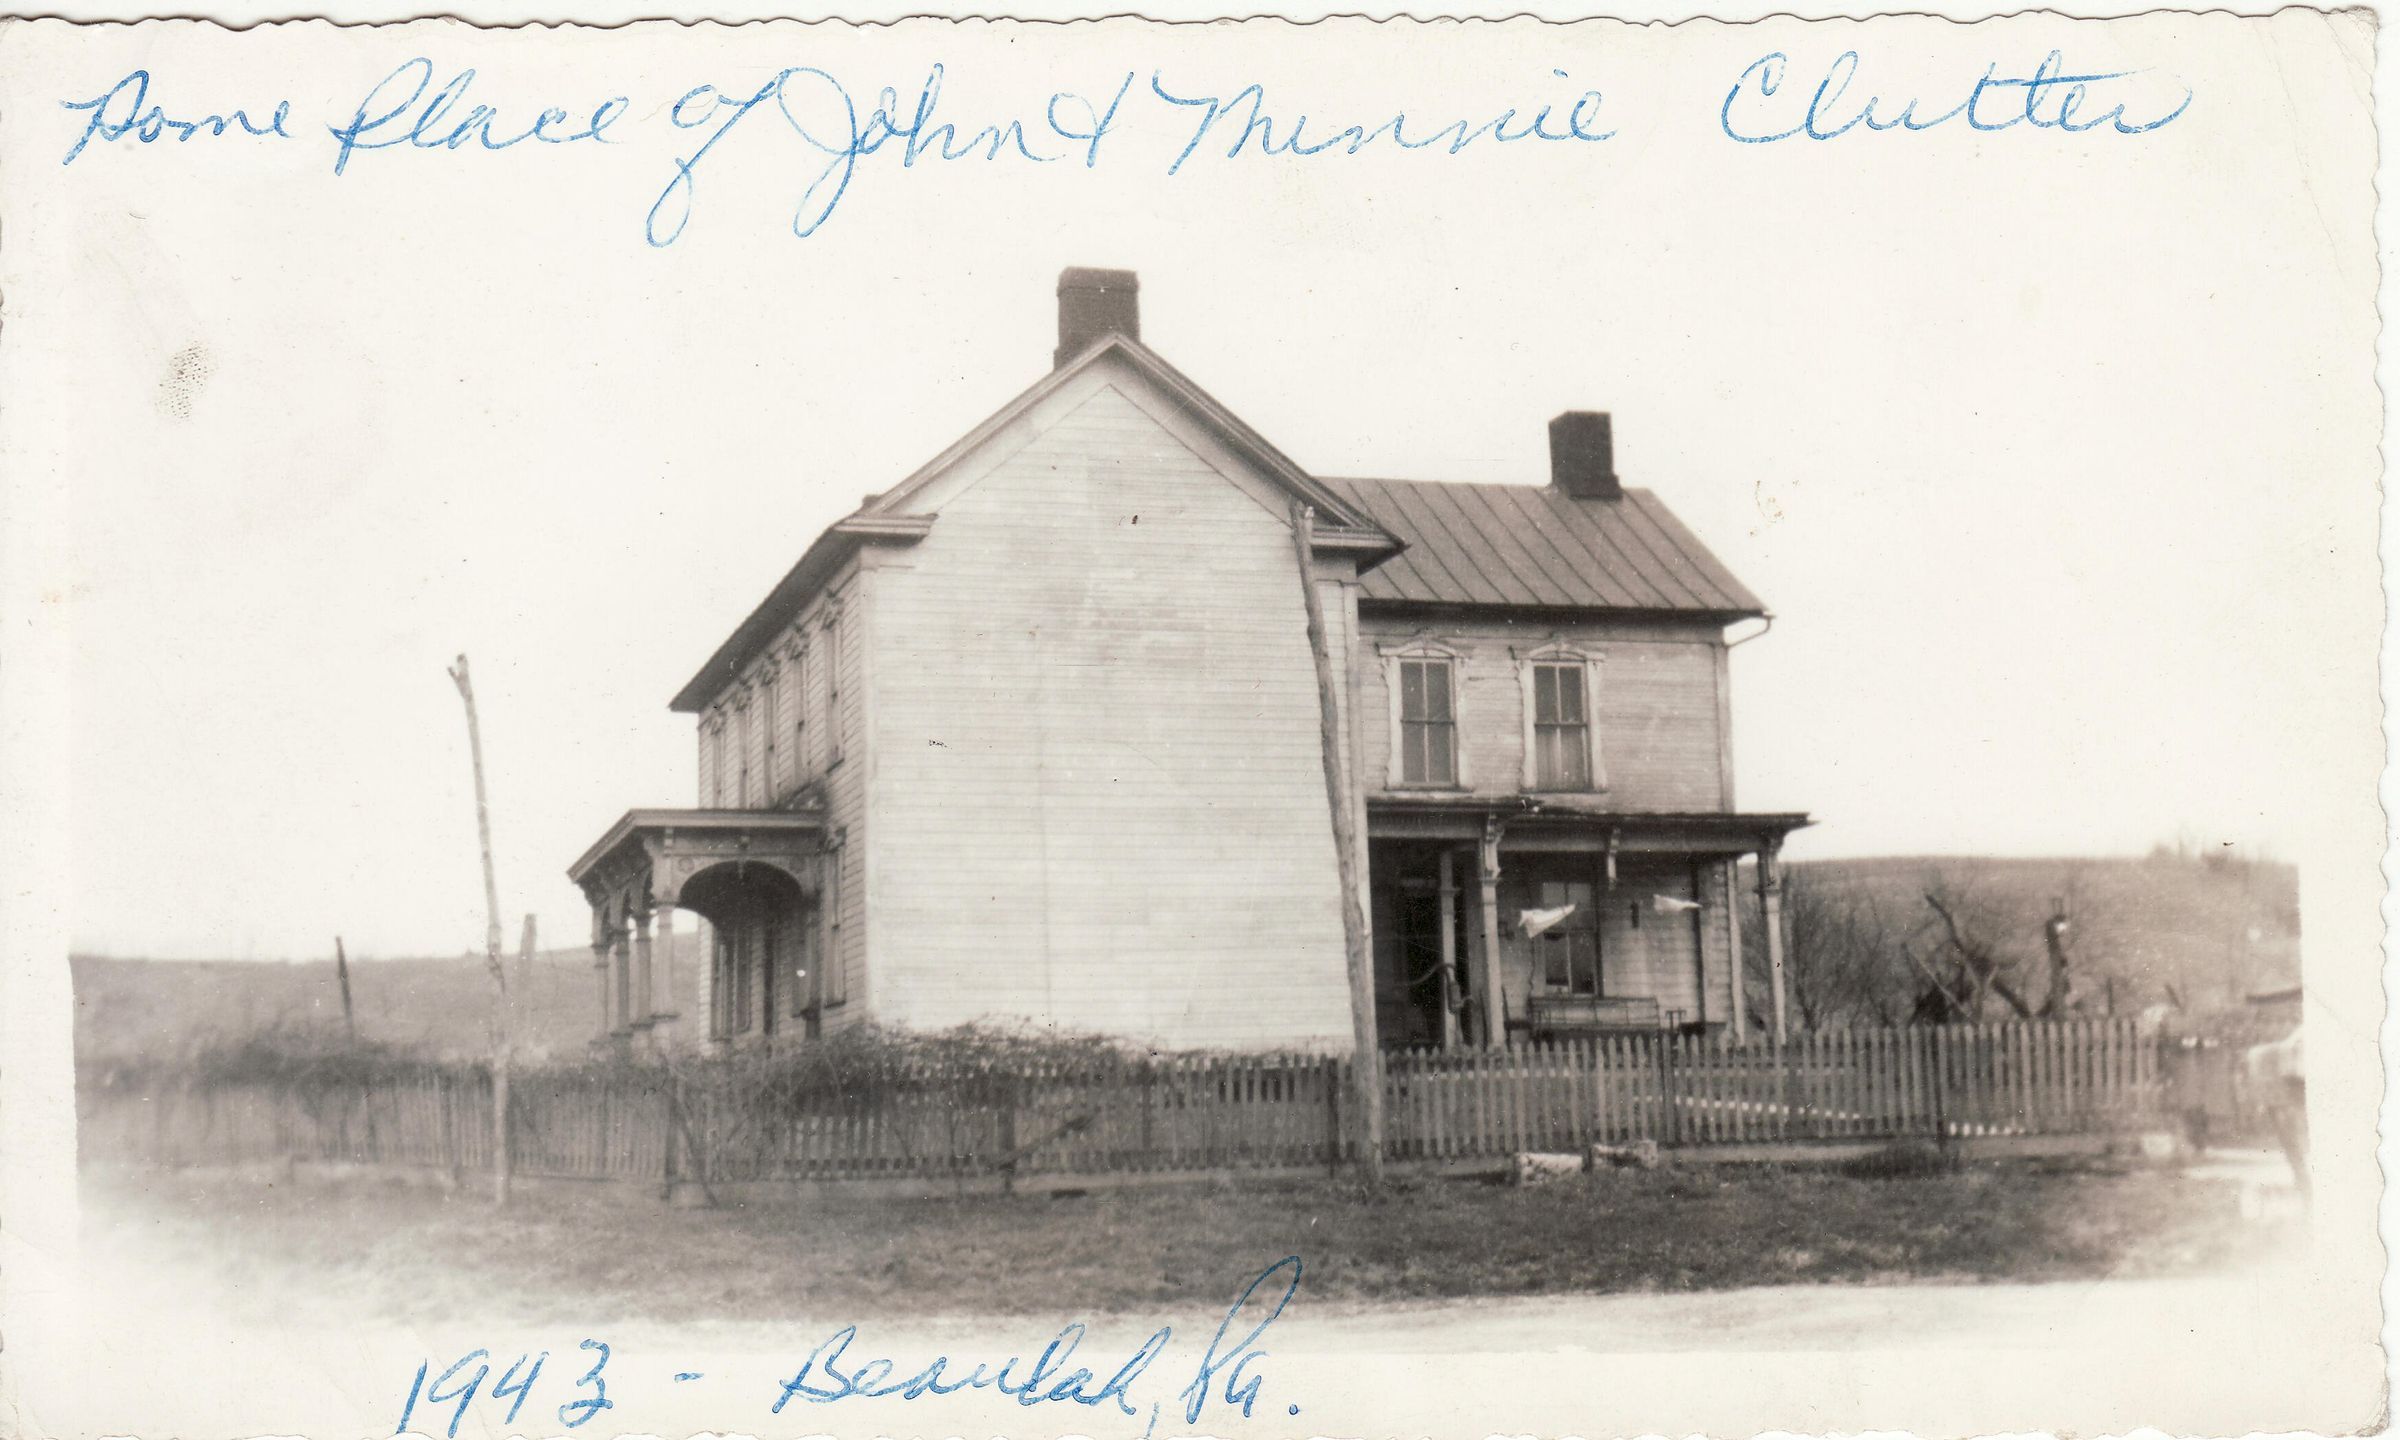 Home Place of John & Minnie Clutter
1943 - Beaulah, Pa.